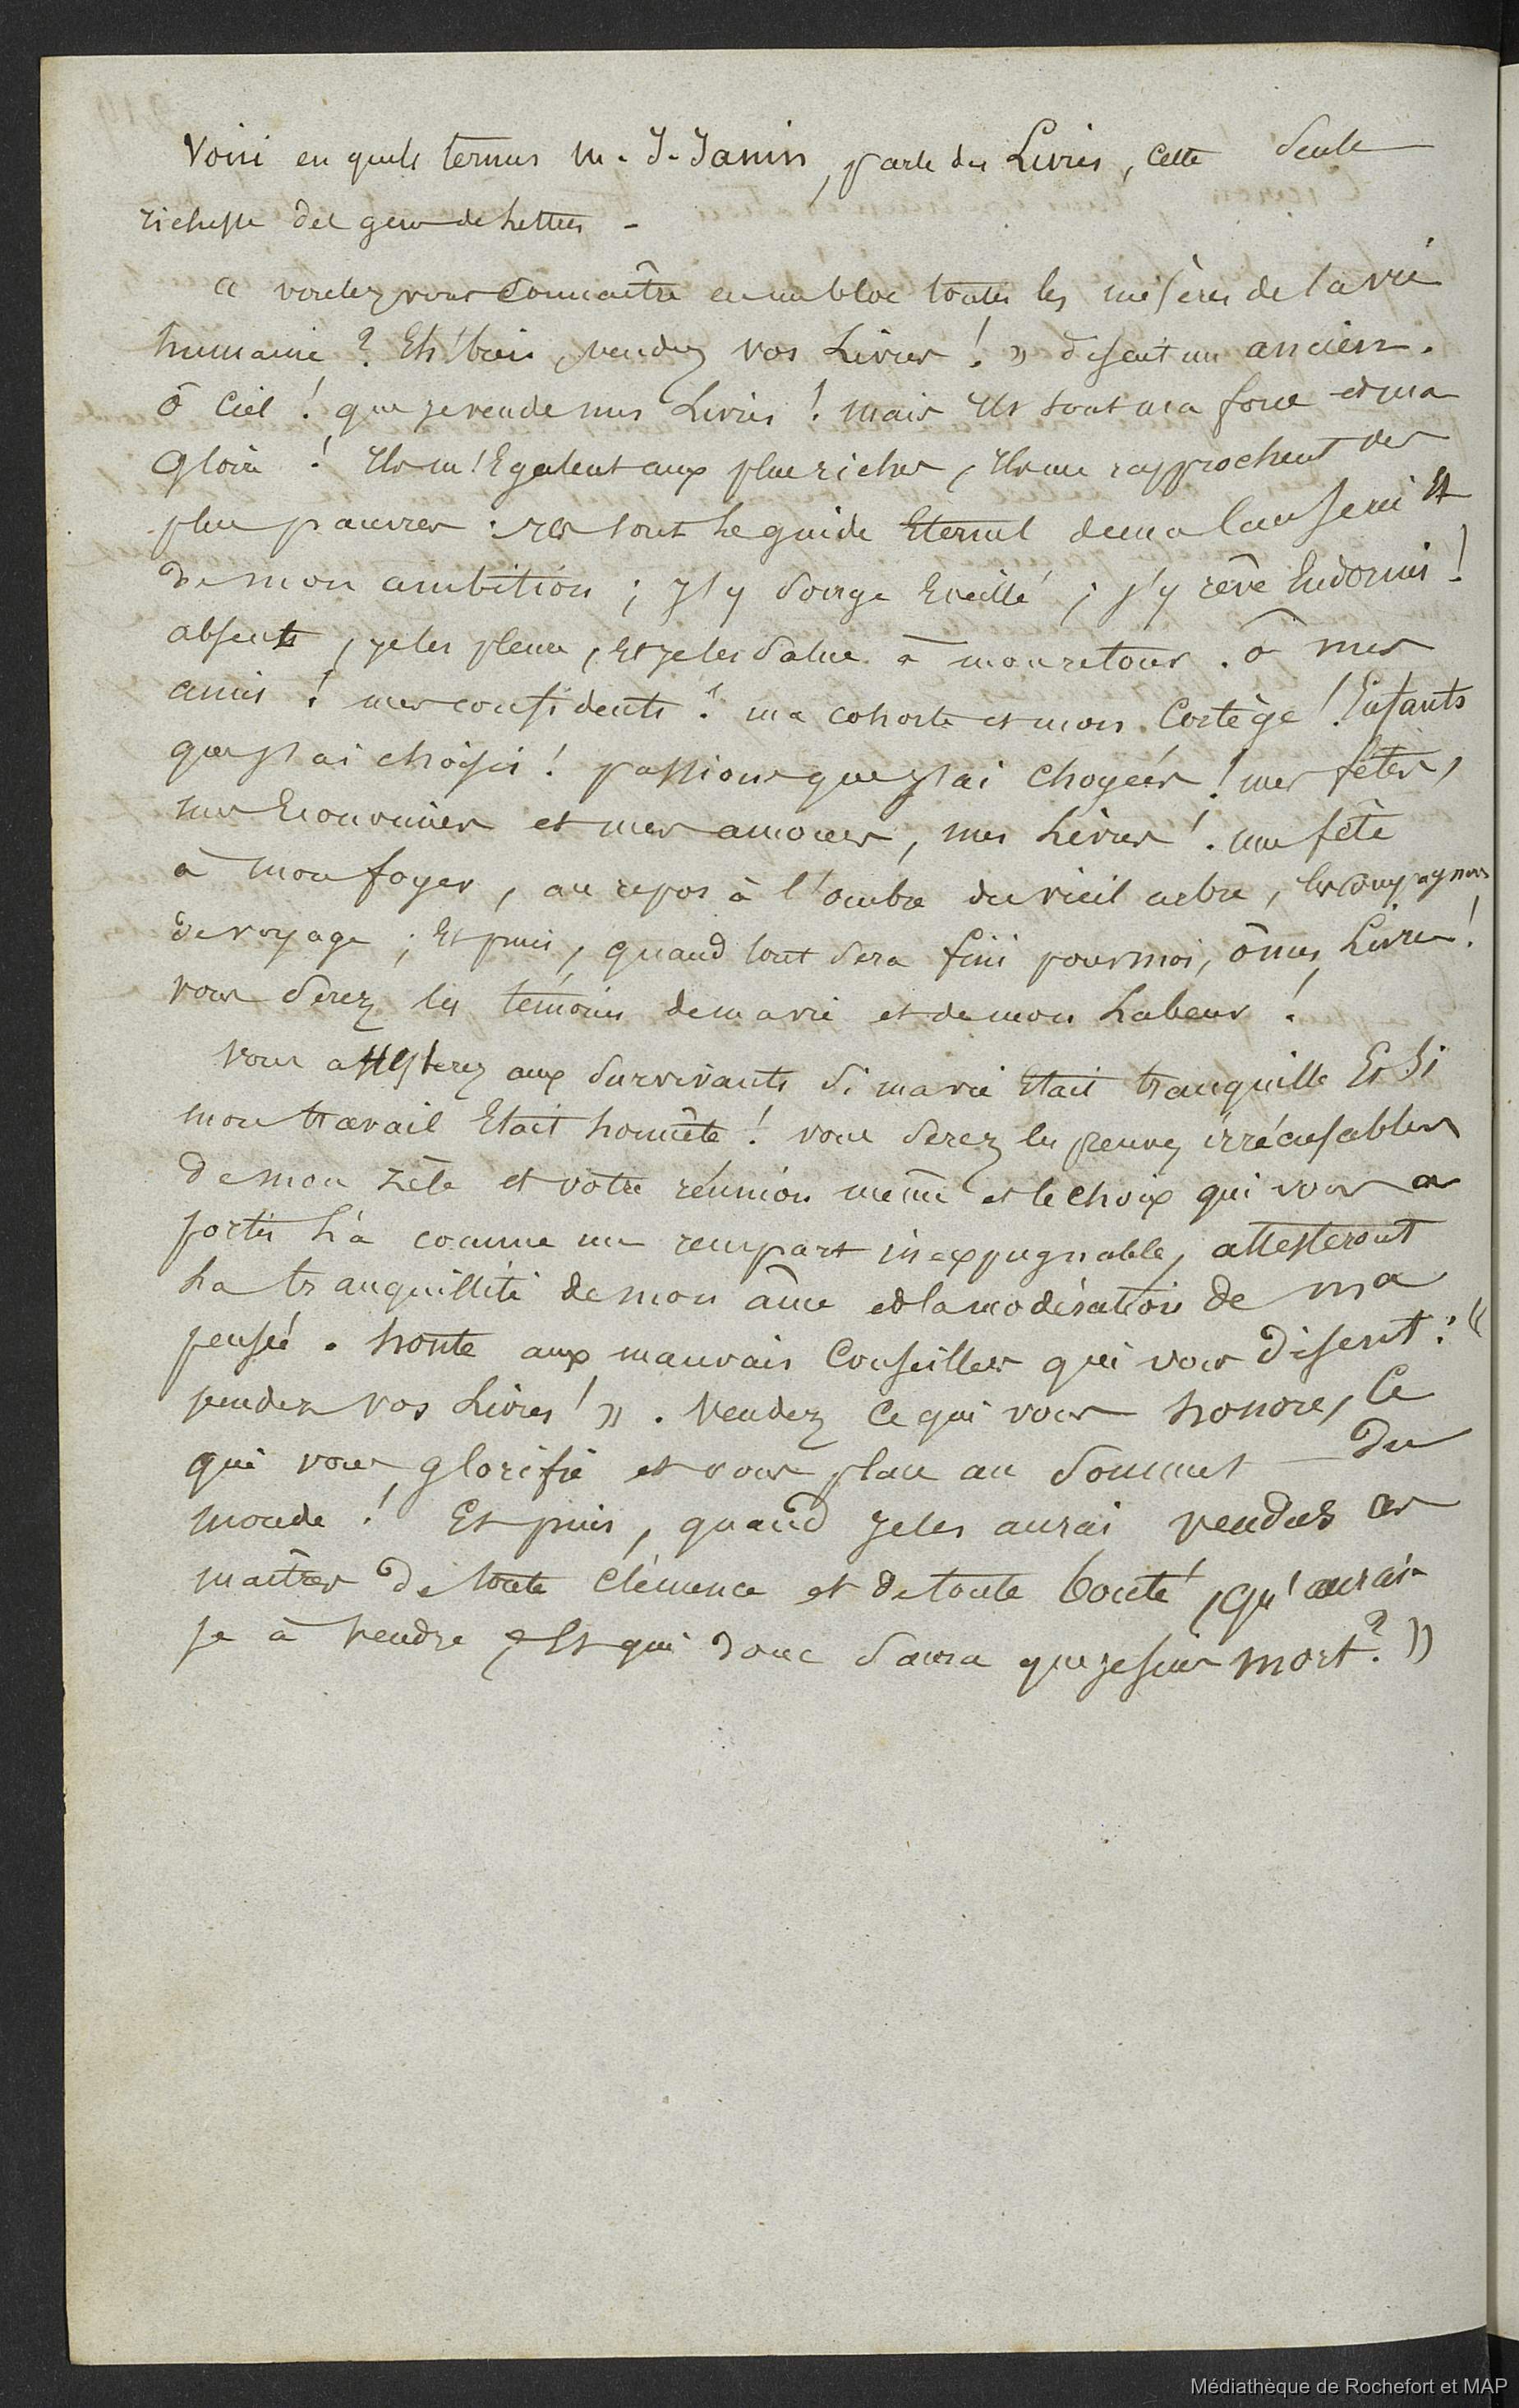 Voici en quels termes M. J. Janin, parle des Livres, cette seule
richesse des gens de Lettres -
« voulez vous connaître en un bloc toutes les misères de la vie
humaine ? Eh ! bien, vendez vos Livres ! » disait un ancien.
ô Ciel ! que je vende mes Livres ! mais ils sont ma force et ma
gloire ! Ils m'Egalent aux plus riches, Ils me rapprochent des
plus pauvres : ils sont le guide Eternel de ma causerie et
de mon ambition ; j'y songe Eveillé ; j'y rêve Endormi !
absents, je les pleure, Et je les salue à mon retour. ô mes
amis ! mes confidents ! ma cohorte et mon Cortège ! Enfants
que j'ai choisis ! passions que j'ai choyées ! mes fêtes,
mes Economies et mes amours, mes Livres ! une fête
à mon foyer, au repos à l'ombre du vieil arbre, les compagnons
de voyage ; Et puis, quand tout sera fini pour moi, ô mes Livres !
vous serez les témoins de ma vie et de mon Labeur !
Vous attesterez aux survivants si ma vie Etait tranquille Et si
mon travail Etait honnête ! vous serez les preuves irrécusables
de mon zèle et votre réunion même et le choix qui vous a
portés là comme un rempart inexpugnable, attesteront
La tranquillité de mon âme et la modération de ma
pensée. honte aux mauvais Conseillers qui vous disent : «
vendez vos Livres ! ». Vendez ce qui vous honore, Ce
qui vous glorifie et vous place au sommet du
monde ! Et puis, quand je les aurai vendus ces
maîtres de toute clémence et de toute bonté, qu'aurai-
je à vendre, Et qui donc saura que je suis mort ? »
Médiathèque de Rochefort et MAP